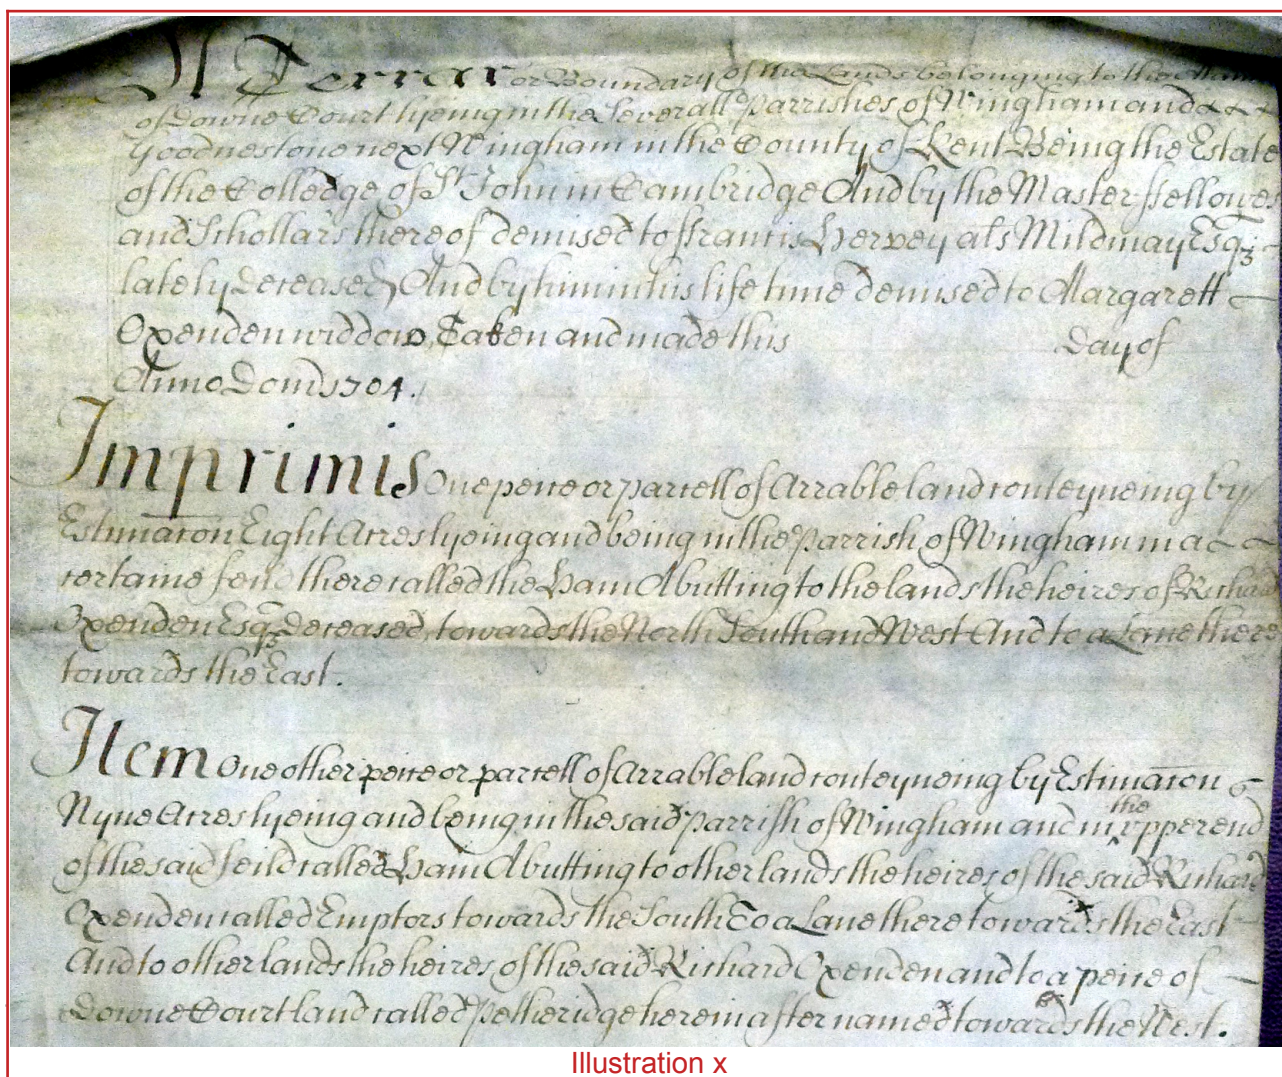 A Terrar or Boundary of the Lands belonging to the
of Downe Court lyeing in the Severall Parrishes of Wingham and & & &
Goodnestone next Wingham in the County of Kent Being the Estate
of the Colledge of St. John in Cambridge And by the Master ffellowes
and Schollars thereof demised to ffrancis Hervey als Mildmay Esqz
lately deceased, And by him in his life time demised to Margarett
Oxenden widdow, Taken and made this day of
Anno Dom 1704.
Imprimis One peice or parcell of Arrable land conteyneing by
Estimacon Eight Acres lyeing and being in the Parrish of Wingham in a
certaine feild there called the Ham Abutting to the lands the heires of Richard
Oxenden Esqz deceased, towards the North South and West And to a Lane there
towards the East.
Item One other peice or parcell of Arrable land conteyneing by Estimacon
Nyne Acres lyeing and being in the said Parrish of Wingham and in the vpper end
of the said feild called Ham Abutting to other lands the heires of the said Richard
Oxenden called Emptors towards the South To a Lane there towards the East
And to other lands the heires of the said Richard Oxenden and to a peice of
Downe Court land called Petheridge herein after named towards the West.
Illustration x